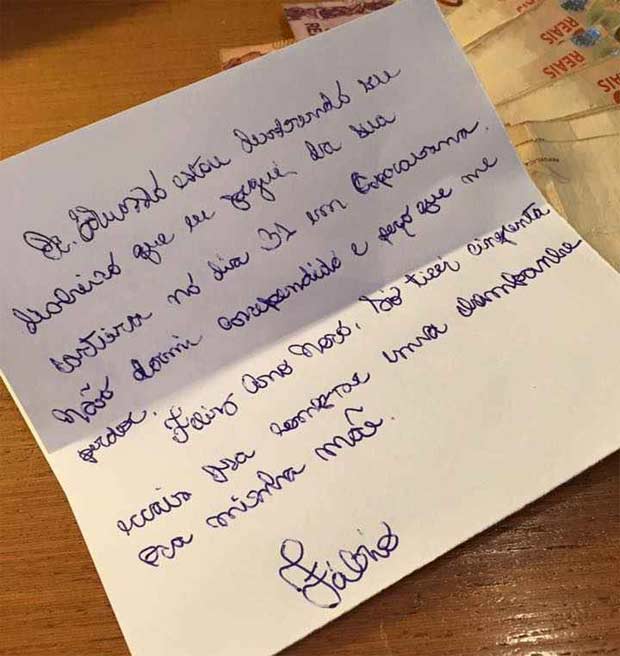 REAIS
REAIS
REAIS
REAIS
Sr. Eduardo estou devolvendo seu
dinheiro que eu peguei da sua
carteira no dia 31 em Copacabana.
Não dormi arrependido e peço que me
perdoe. Feliz Ano Novo. Só tirei cinquenta
reais pra comprar uma champanhe
pra minha mãe.
Fábio